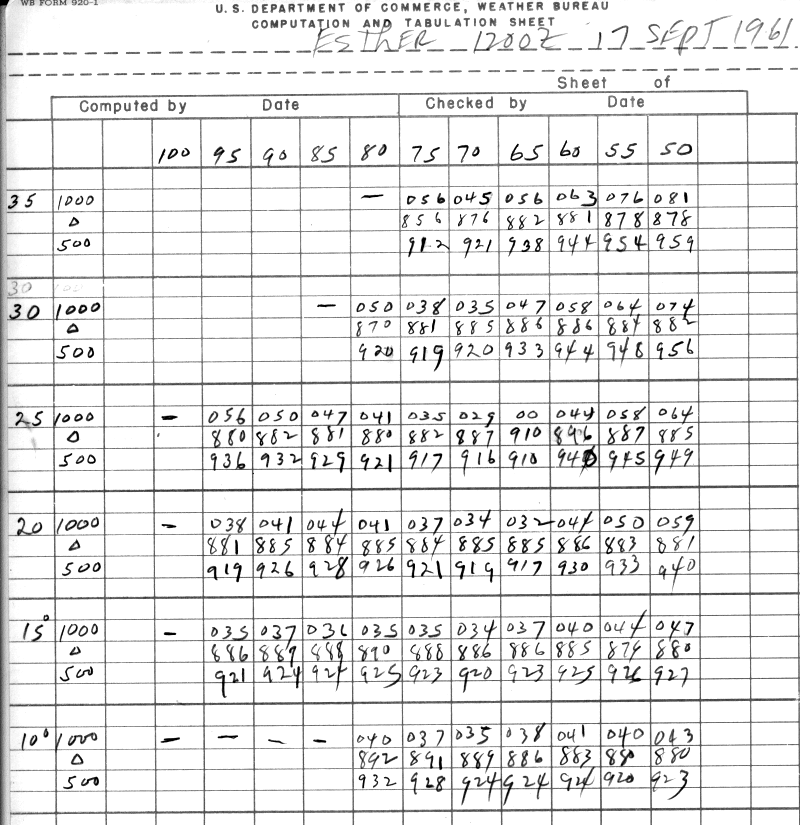 WB FORM 920-1
U. S. DEPARTMENT OF COMMERCE, WEATHER BUREAU
COMPUTATION AND TABULATION SHEET
ESTHER 1200Z 17 SEPT 1961
Sheet of
Computed by Date Checked by Date
100 95 90 85 80 75 70 65 60 55 50
35 1000 — 056 045 056 063 076 081
Δ 856 876 882 881 878 878
500 912 921 938 944 954 959
30
30 1000 — 050 038 035 047 058 064 074
Δ 870 881 885 886 886 884 882
500 920 919 920 933 944 948 956
25 1000 — 056 050 047 041 035 029 00 044 058 064
Δ 880 882 881 880 882 887 910 896 887 885
500 936 932 929 921 917 916 910 940 945 949
20 1000 — 038 041 044 041 037 034 032 044 050 059
Δ 881 885 884 885 884 885 885 886 883 881
500 919 926 928 926 921 919 917 930 933 940
15° 1000 — 035 037 036 035 035 034 037 040 044 047
Δ 886 887 888 890 888 886 886 885 879 880
500 921 924 924 925 923 920 923 925 926 927
10° 1000 — — — — 040 037 035 038 041 040 043
Δ 892 891 889 886 883 880 880
500 932 928 924 924 924 920 923